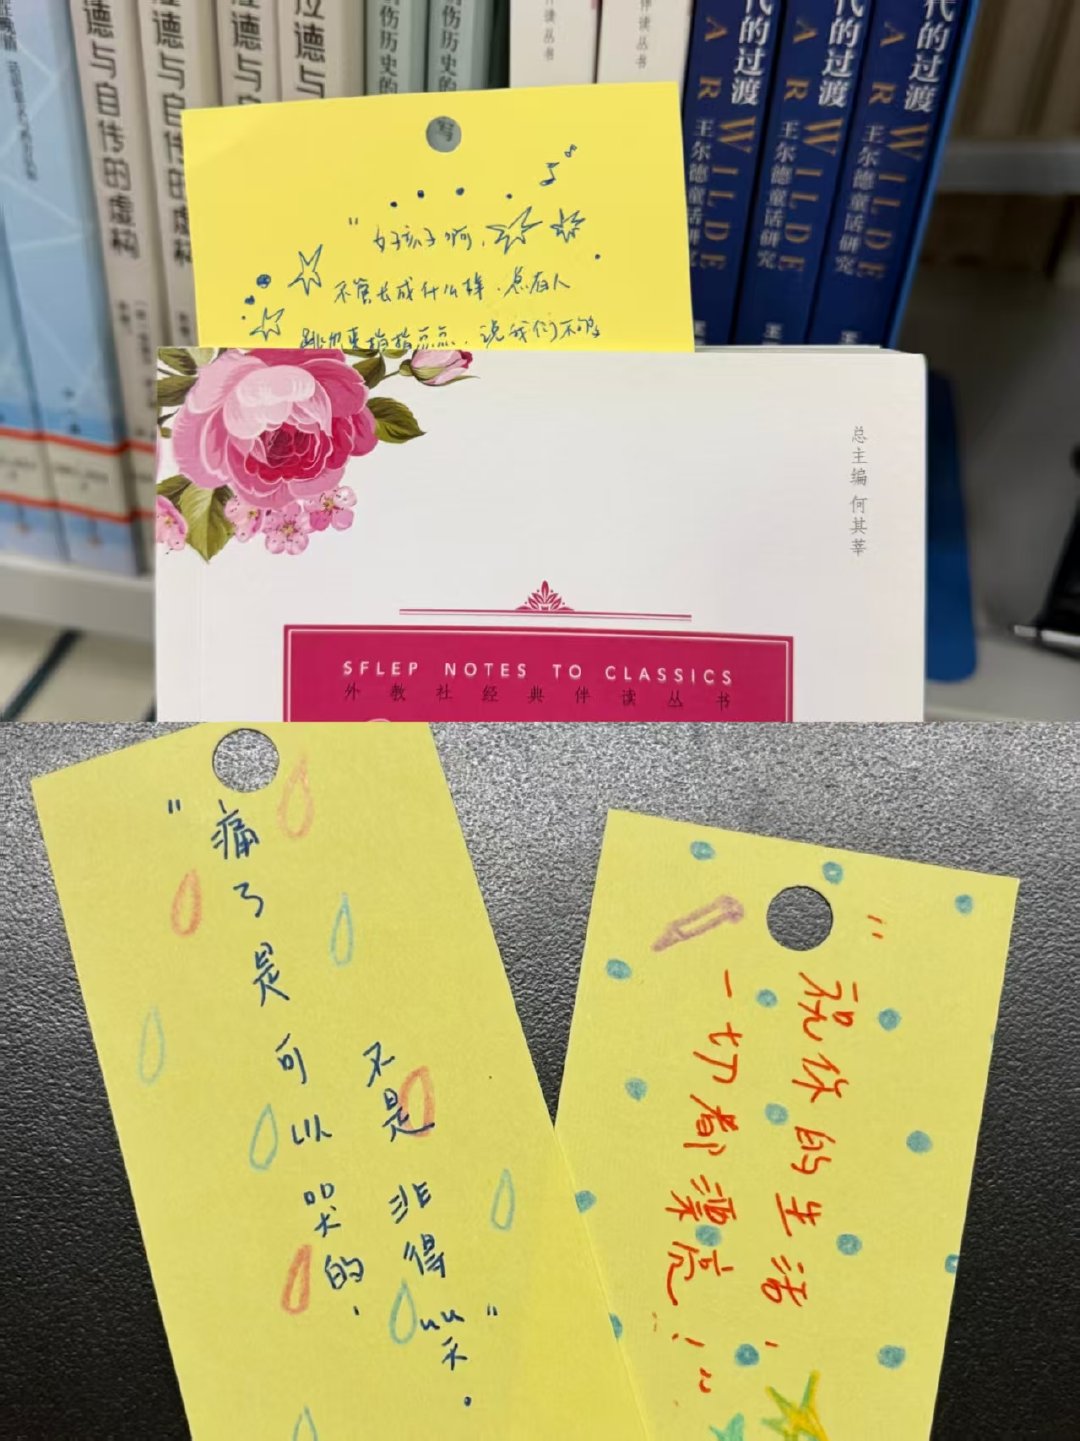 拉德与自传的虚构
德与自传的虚构
拉德与自
拉德与
伤历史的
的伤历史的
伴读丛书
伴读丛书
代的过渡
WILDE
王尔德童话研究
代的过渡
WILDE
王尔德童话研究
代的过渡
WILDE
王尔德童话研究
写
"女孩子啊,
不管长成什么样,总有人
跳出来指指点点,说我们不够
总主编 何其莘
SFLEP NOTES TO CLASSICS
外教社经典伴读丛书
"痛了是可以哭的,
不是非得笑。"
"祝你的生活,
一切都漂亮!"